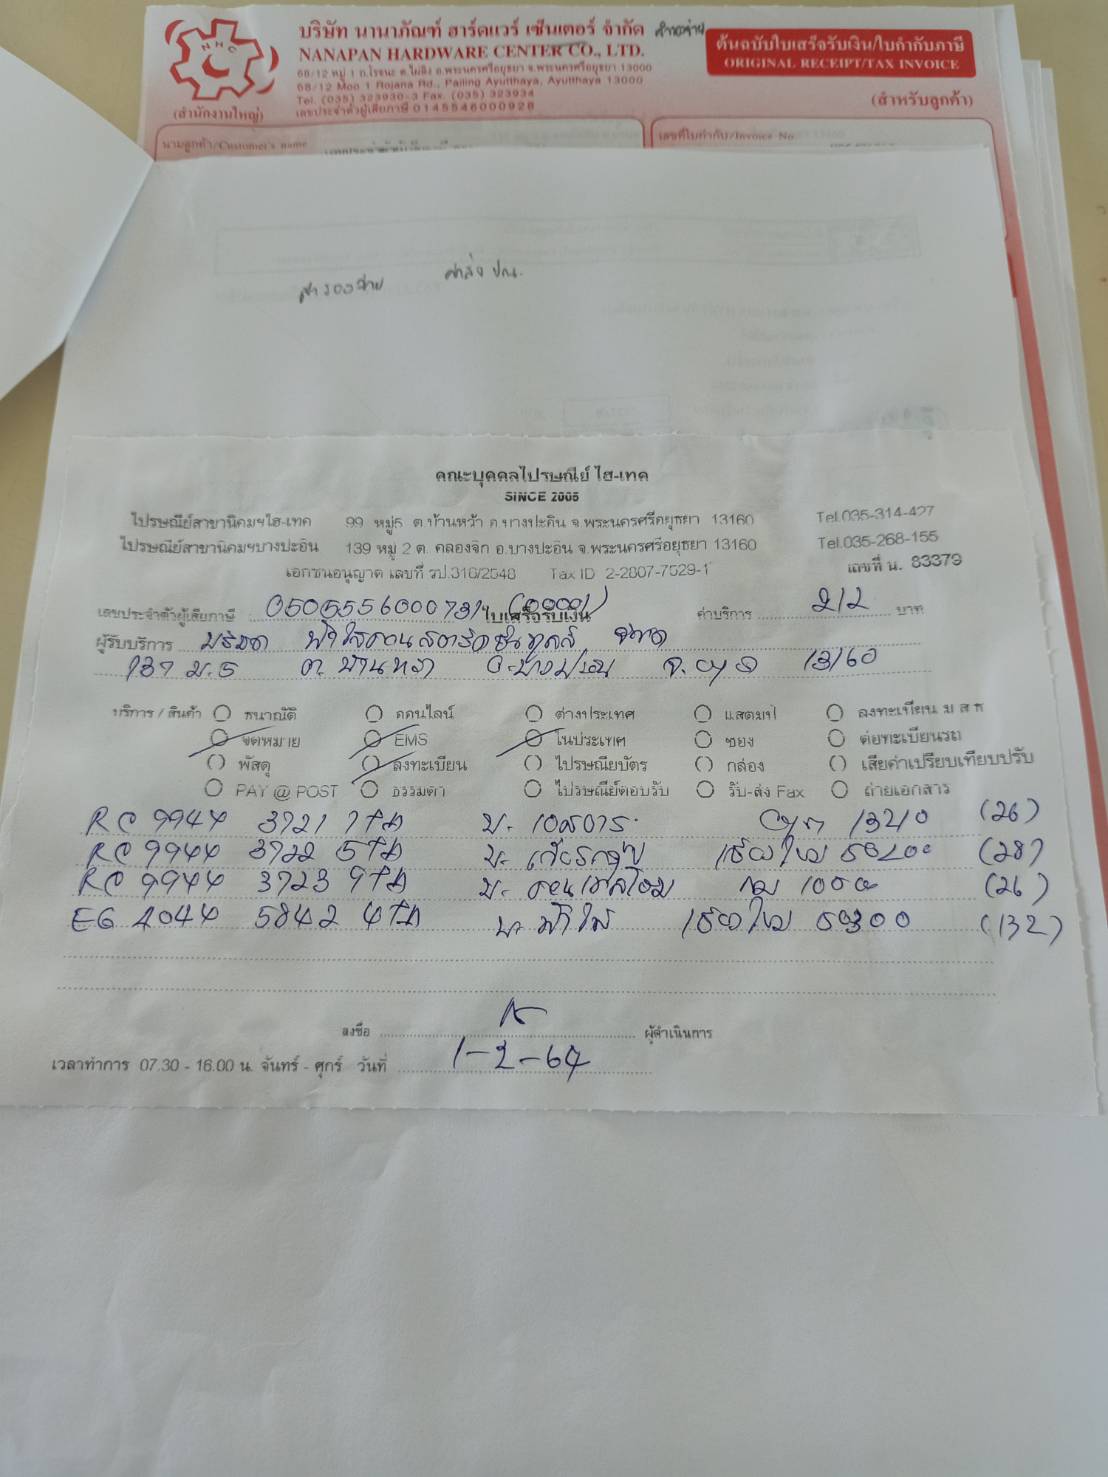 บริษัท นานาภัณฑ์ ฮาร์ดแวร์ เซ็นเตอร์ จำกัด สำรองจ่าย
NANAPAN HARDWARE CENTER CO., LTD.
68/12 หมู่ 1 ถ.โรจนะ ต.ไผ่ลิง อ.พระนครศรีอยุธยา จ.พระนครศรีอยุธยา 13000
68/12 Moo 1 Rojana Rd., Pailing Ayutthaya, Ayutthaya 13000
Tel. (035) 323930-3 Fax. (035) 323934
เลขประจำตัวผู้เสียภาษี 0145546000928
NHC
(สำนักงานใหญ่)
ต้นฉบับใบเสร็จรับเงิน/ใบกำกับภาษี
ORIGINAL RECEIPT/TAX INVOICE
(สำหรับลูกค้า)
นามลูกค้า/Customer's name
เลขที่ใบกำกับ/Invoice No
สำรองจ่าย ค่าส่ง ปณ.
คณะบุคคลไปรษณีย์ ไฮ-เทค
SINCE 2005
ไปรษณีย์สาขานิคมฯไฮ-เทค 99 หมู่5 ต.บ้านหว้า อ.บางปะอิน จ.พระนครศรีอยุธยา 13160 Tel.035-314-427
ไปรษณีย์สาขานิคมฯบางปะอิน 139 หมู่ 2 ต. คลองจิก อ.บางปะอิน จ.พระนครศรีอยุธยา 13160 Tel.035-268-155
เอกชนอนุญาต เลขที่ รป.316/2548 Tax ID 2-2807-7529-1 เลขที่ น. 83379
เลขประจำตัวผู้เสียภาษี 0505556000731 (00001) ใบเสร็จรับเงิน ค่าบริการ 212 บาท
ผู้รับบริการ บริษัท ฟ้าใสคอนสตรัคชั่น จำกัด
139 ม.5 ต.บ้านหว้า อ.บางปะอิน จ.อยุธยา 13160
บริการ / สินค้า ธนาณัติ ออนไลน์ ต่างประเทศ แสตมป์ ลงทะเบียน ม ส ท
จดหมาย EMS ในประเทศ ซอง ต่อทะเบียนรถ
พัสดุ ลงทะเบียน ไปรษณียบัตร กล่อง เสียค่าเปรียบเทียบปรับ
PAY @ POST ธรรมดา ไปรษณีย์ตอบรับ รับ-ส่ง Fax ถ่ายเอกสาร
RC 9944 3721 7TH บ. (26)
RC 9944 3722 5TH บ. เชียงใหม่ (28)
RC 9944 3723 9TH บ. (26)
EG 4044 5842 4TH เชียงใหม่ 50300 (132)
ลงชื่อ ผู้ดำเนินการ
เวลาทำการ 07.30 - 16.00 น. จันทร์ - ศุกร์ วันที่ 1-2-64